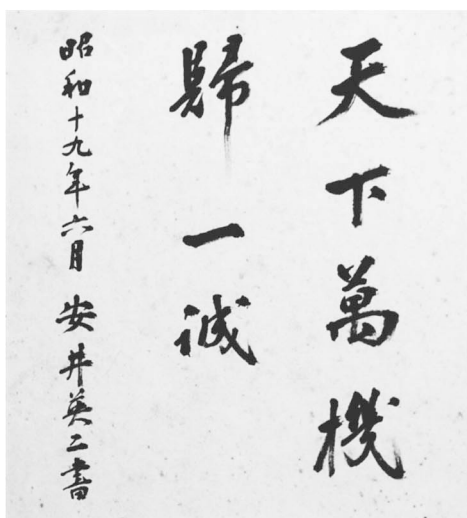 天下萬機
歸一誠
昭和十九年六月 安井英二書